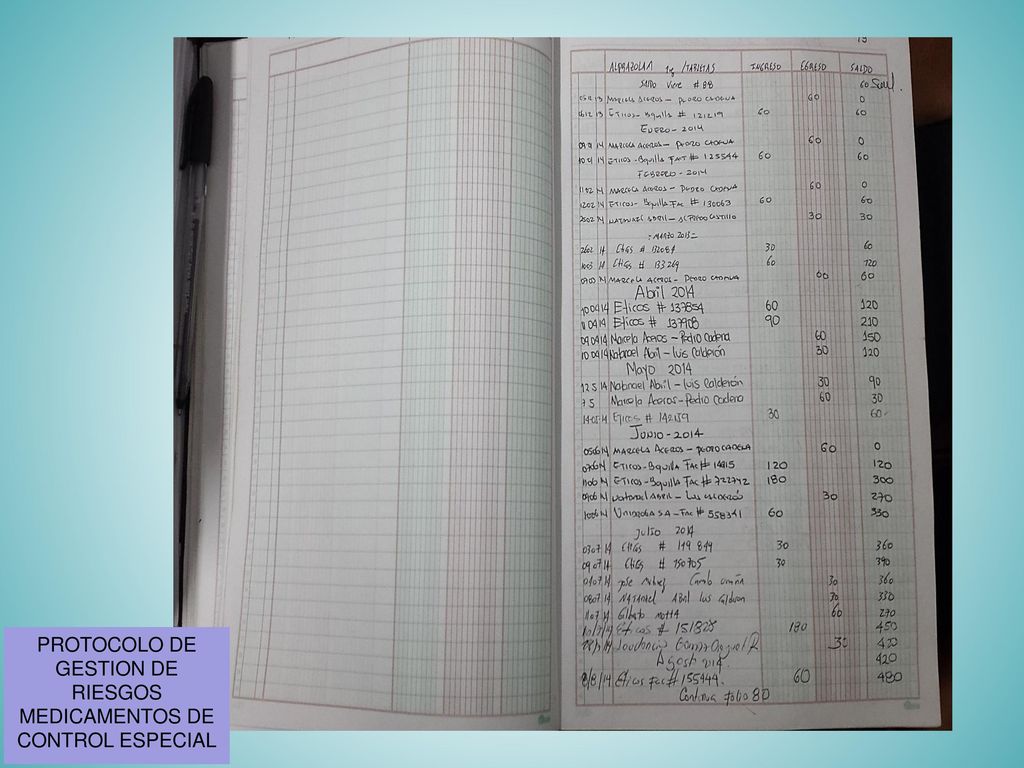 19
ALPRAZOLAM 1g /TABLETAS INGRESO EGRESO SALDO
Saldo Viene # 88 60
MARCELA ACEROS - PEDRO CADENA 60 0
ETICOS - Bquilla # 121219 60 60
ENERO - 2014
MARCELA ACEROS - PEDRO CADENA 60 0
ETICOS - Bquilla FACT # 125544 60 60
FEBRERO - 2014
MARCELA ACEROS - PEDRO CADENA 60 0
1202 14 ETICOS - Bquilla Fac # 130063 60 60
2502 14 NATANAEL ABRIL - ALFREDO CASTILLO 30 30
- MARZO 2013 -
2602 14 # 132084 30 60
1003 14 # 133269 60 120
MARCELA ACEROS - PEDRO CADENA 60 60
Abril 2014
100414 Eticos # 137854 60 120
110414 Eticos # 137908 90 210
090414 Marcela Aceros - Pedro Cadena 60 150
100414 Natanael Abril - Luis Calderón 30 120
Mayo 2014
12 5 14 Natanael Abril - Luis Calderón 30 90
7 5 Marcela Aceros - Pedro Cadena 60 30
140514 Eticos # 142159 30 60
JUNIO - 2014
050614 MARCELA ACEROS - PEDRO CADENA 60 0
ETICOS - Bquilla Fac # 120 120
110614 ETICOS - Bquilla Fac # 722742 180 300
090614 Natanael ABRIL - Luis CALDERÓN 30 270
UNIDROGA SA - FAC # 558341 60 330
Julio 2014
0307 14 # 149 849 30 360
0907 14 # 150705 30 390
0107 14 José 30 360
0807 14 NATANAEL ABRIL Luis Calderon 30 330
1107 14 Gilberto motta 60 270
10/7/14 Eticos # 151828 180 450
30 420
Agost 2014. 420
8/8/14 Eticos Fact # 155444. 60 480
Continua folio 80
PROTOCOLO DE
GESTION DE
RIESGOS
MEDICAMENTOS DE
CONTROL ESPECIAL